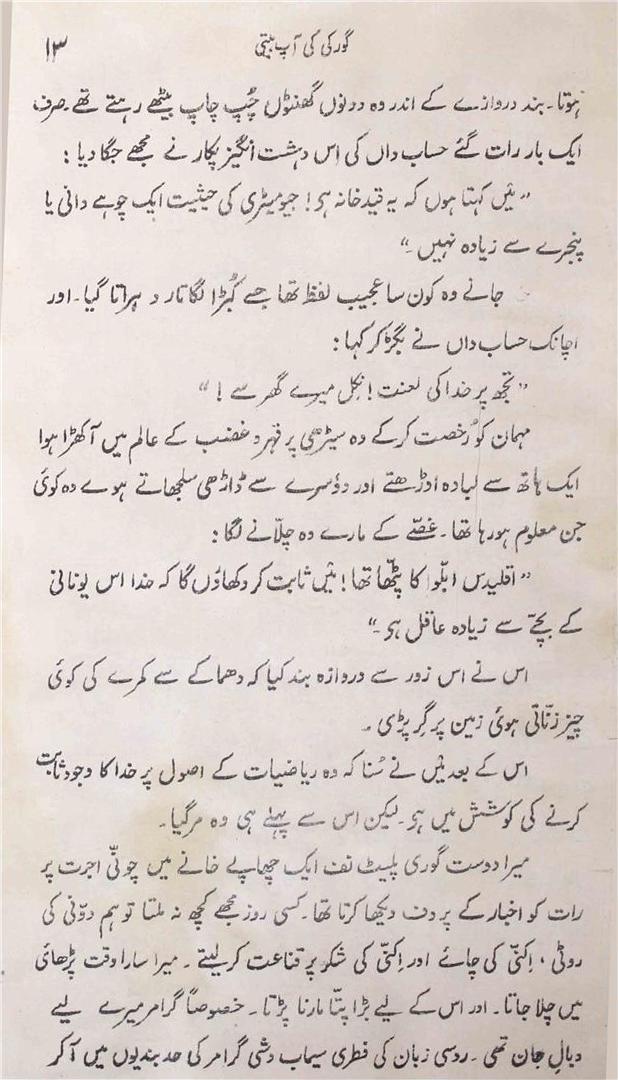 گورکی کی آپ بیتی
۱۳
ہوتا۔ بند دروازے کے اندر وہ دونوں گھنٹوں چُپ چاپ بیٹھے رہتے تھے۔ صرف
ایک بار رات گئے حساب داں کی اِس دہشت انگیز پکار نے مجھے جگا دیا :
”مَیں کہتا ہوں کہ یہ قید خانہ ہی! جیومیٹری کی حیثیت ایک چوہے دانی یا
پنجرے سے زیادہ نہیں ۔“
جانے وہ کون سا عجیب لفظ تھا جسے کُبڑا لگاتار دہراتا گیا۔ اور
اچانک حساب داں نے بگڑ کر کہا :
”تجھ پر خدا کی لعنت! نِکل میرے گھر سے ! “
مہمان کو رُخصت کر کے وہ سیڑھی پر قہر و غضب کے عالم میں آکھڑا ہوا
ایک ہاتھ سے لبادہ اوڑھتے اور دوُسرے سے ڈاڑھی سلجھاتے ہوے وہ کوئی
جن معلوم ہو رہا تھا۔ غصّے کے مارے وہ چلّانے لگا :
”اقلیدس اُلّو کا پٹّھا تھا! مَیں ثابت کر دکھاؤں گا کہ خدا اس یونانی
کے بچّے سے زیادہ عاقل ہی ۔“
اس نے اس زور سے دروازہ بند کیا کہ دھماکے سے کمرے کی کوئی
چیز زنّاتی ہوئی زمین پر گِر پڑی ۔
اس کے بعد مَیں نے سُنا کہ وہ ریاضیات کے اصول پر خدا کا وجود ثابت
کرنے کی کوشش میں ہی۔ لیکن اس سے پہلے ہی وہ مر گیا۔
میرا دوست گوری پلیٹ نف ایک چھاپے خانے میں چونّی اجرت پر
رات کو اخبار کے پروف دیکھا کرتا تھا۔ کسی روز مجھے کچھ نہ ملتا تو ہم دوّنی کی
روٹی ، اِکنّی کی چائے اور اِکنّی کی شکر پر قناعت کر لیتے ۔ میرا سارا وقت پڑھائی
میں چلا جاتا۔ اور اس کے لیے بڑا پتّا مارنا پڑتا ۔ خصوصاً گرامر میرے لیے
وبالِ جان تھی ۔ روسی زبان کی فطری سیماب وشی گرامر کی حد بندیوں میں آکر